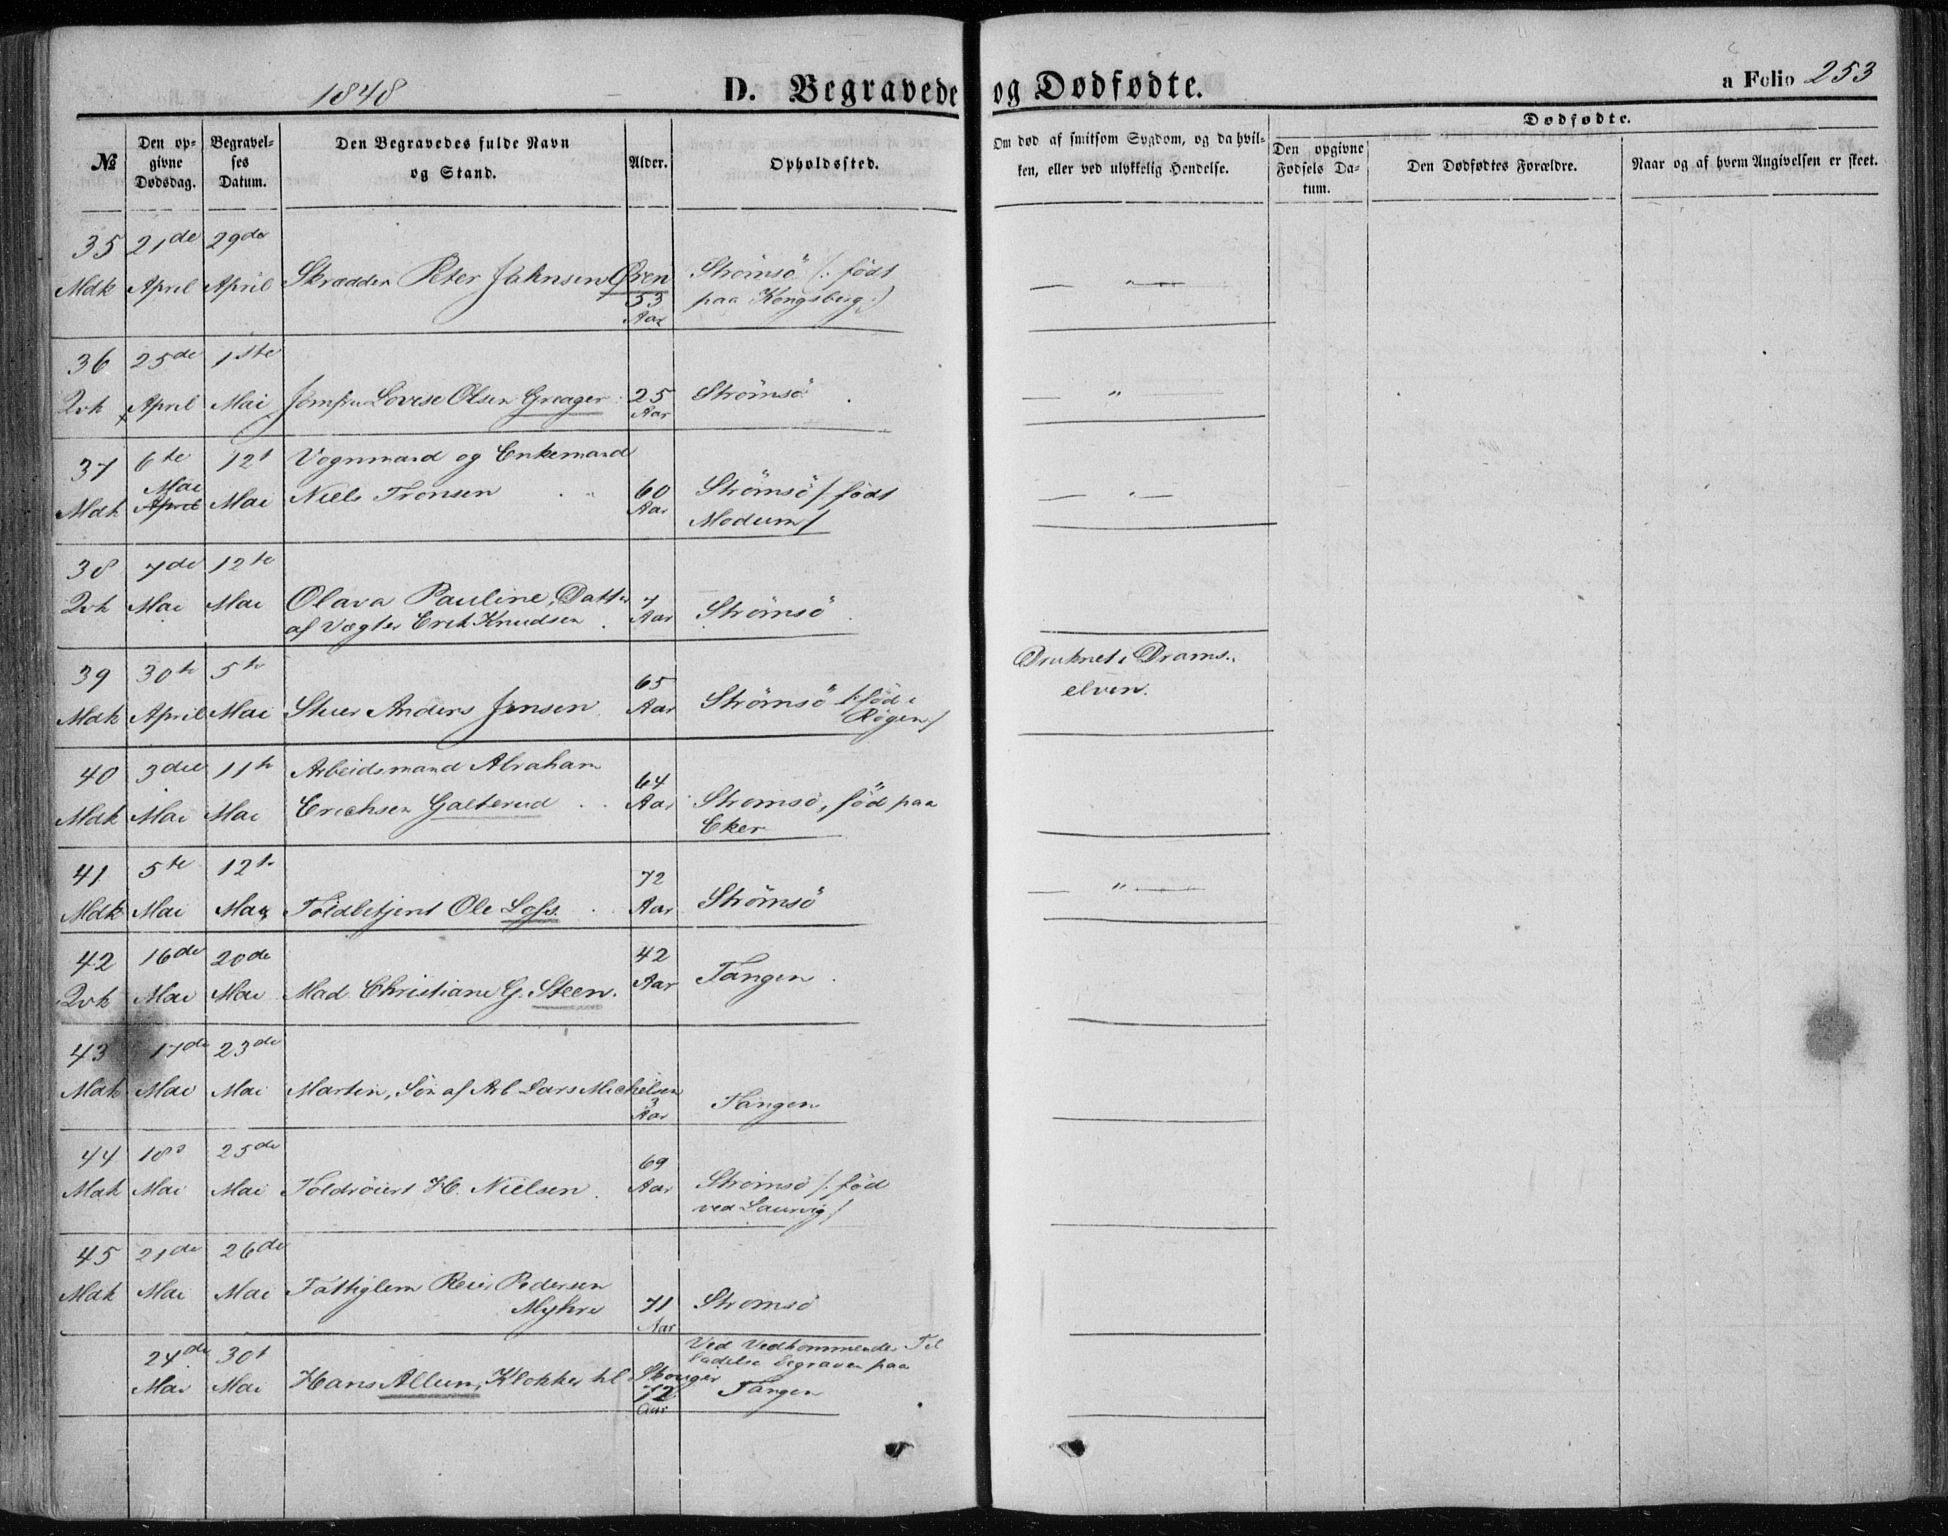 1848
D. Begravede og Dødfødte.
a Folio 253
№
Den opgivne Dødsdag.
Begravelses Datum.
Den Begravedes fulde Navn og Stand.
Alder.
Opholdssted.
Om død af smitsom Sygdom, og da hvilken, eller ved ulykkelig Hendelse.
Dødfødte.
Den opgivne Fødsels Datum.
Den Dødfødtes Forældre.
Naar og af hvem Angivelsen er skeet.
35 21de 29de
Mdk April April Skrædder Peter Jahnsen Øren 53 Aar Strømsö /: födt
paa Kongsberg :/
— " —
36 25de 1ste
Qvk April Mai Jomfru Lovise Olsen Greager 25 Aar Strømsö
— "
37 6te 12t Vognmand og Enkemand
Mdk Mai April Mai Niels Tronsen 60 Aar Strömsö / födt
Modum /
— " —
38 7de 12te
Qvk Mai Mai Olava Pauline, Datter 7 Aar Strömsö
af Vægter Erik Knudsen
39 30te 5te
Mdk April Mai Stuer Anders Jensen 65 Aar Strömsö /: föd i
Røgen /
Druknet i Drams-
elven.
40 3die 11te Arbeidsmand Abraham
Mdk Mai Mai Erichsen Galterud 64 Aar Strömsö, föd paa
Eker
41 5te 12te
Mdk Mai Mai Toldbetjent Ole Lofs 72 Aar Strömsö
— " —
42 16de 20de
Qvk Mai Mai Mad. Christiane G. Steen. 42 Aar Tangen
43 17de 23de
Mdk Mai Mai Martin, Søn af Arb Lars Mickelsen 3 Aar Tangen
44 18d 25de
Mdk Mai Mai Toldröiert H. Nielsen 69 Aar Strömsö /: föd
ved Laurvig /
45 21de 26de
Mdk Mai Mai Fattiglem Reier Pedersen
Myhre 71 Aar Strömsö
24de 30t
Mai Mai Hans Allum, Klokker til Skouger 72 Aar
Ved Vedkommendes Til
ladelse begraven paa
Tangen